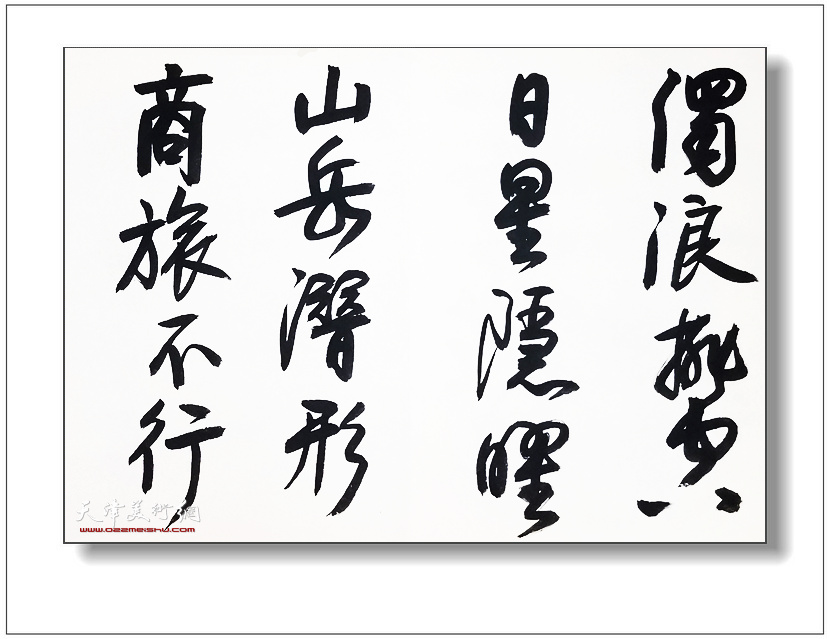 濁浪排空
日星隱曜
山岳潛形
商旅不行
天津美術網
www.022meishu.com